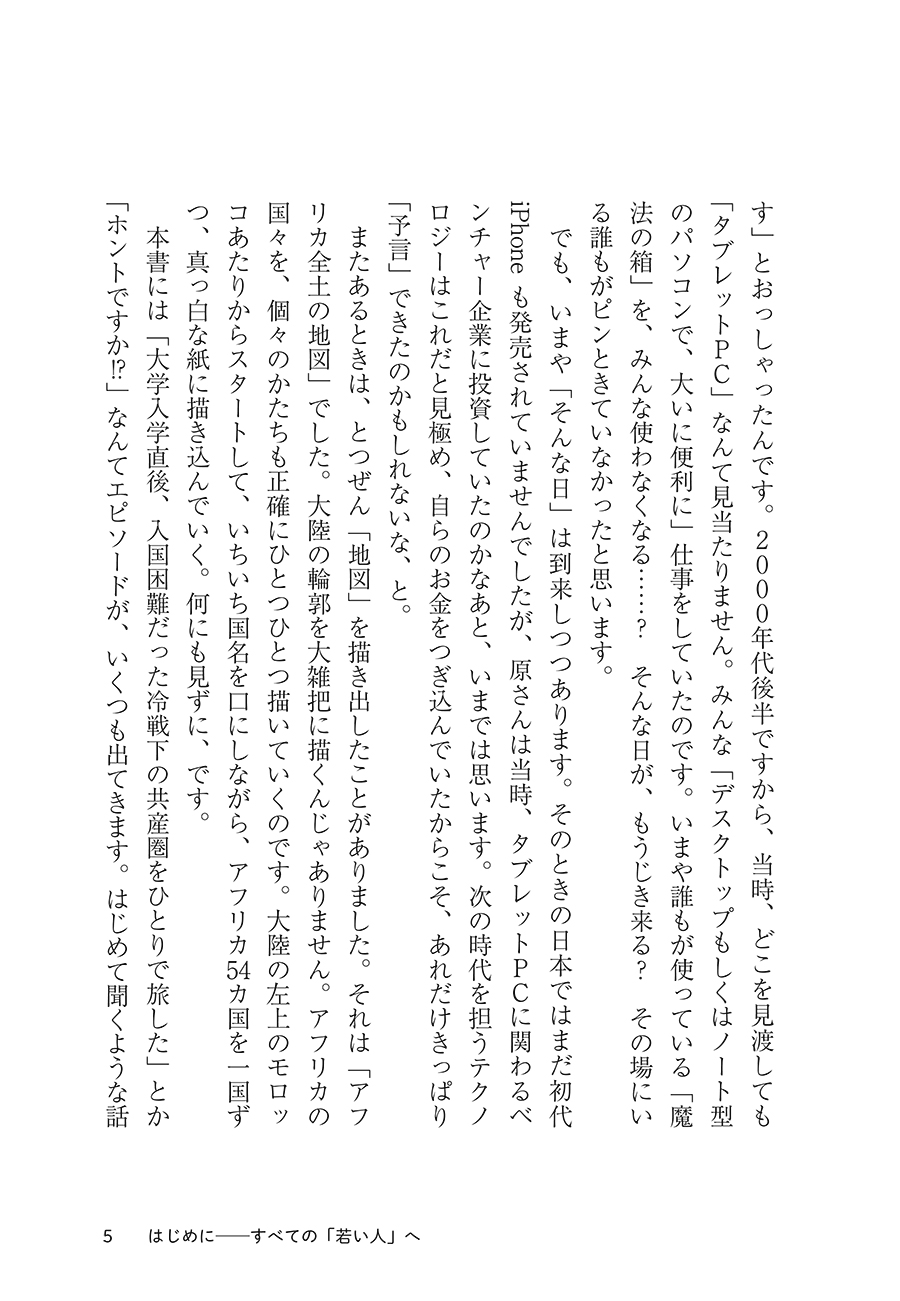 す」とおっしゃったんです。２０００年代後半ですから、当時、どこを見渡しても
「タブレットＰＣ」なんて見当たりません。みんな「デスクトップもしくはノート型
のパソコンで、大いに便利に」仕事をしていたのです。いまや誰もが使っている「魔
法の箱」を、みんな使わなくなる……？　そんな日が、もうじき来る？　その場にい
る誰もがピンときていなかったと思います。
　でも、いまや「そんな日」は到来しつつあります。そのときの日本ではまだ初代
iPhone も発売されていませんでしたが、原さんは当時、タブレットＰＣに関わるベ
ンチャー企業に投資していたのかなあと、いまでは思います。次の時代を担うテクノ
ロジーはこれだと見極め、自らのお金をつぎ込んでいたからこそ、あれだけきっぱり
「予言」できたのかもしれないな、と。
　またあるときは、とつぜん「地図」を描き出したことがありました。それは「アフ
リカ全土の地図」でした。大陸の輪郭を大雑把に描くんじゃありません。アフリカの
国々を、個々のかたちも正確にひとつひとつ描いていくのです。大陸の左上のモロッ
コあたりからスタートして、いちいち国名を口にしながら、アフリカ54カ国を一国ず
つ、真っ白な紙に描き込んでいく。何にも見ずに、です。
　本書には「大学入学直後、入国困難だった冷戦下の共産圏をひとりで旅した」とか
「ホントですか⁉」なんてエピソードが、いくつも出てきます。はじめて聞くような話
5　はじめに――すべての「若い人」へ